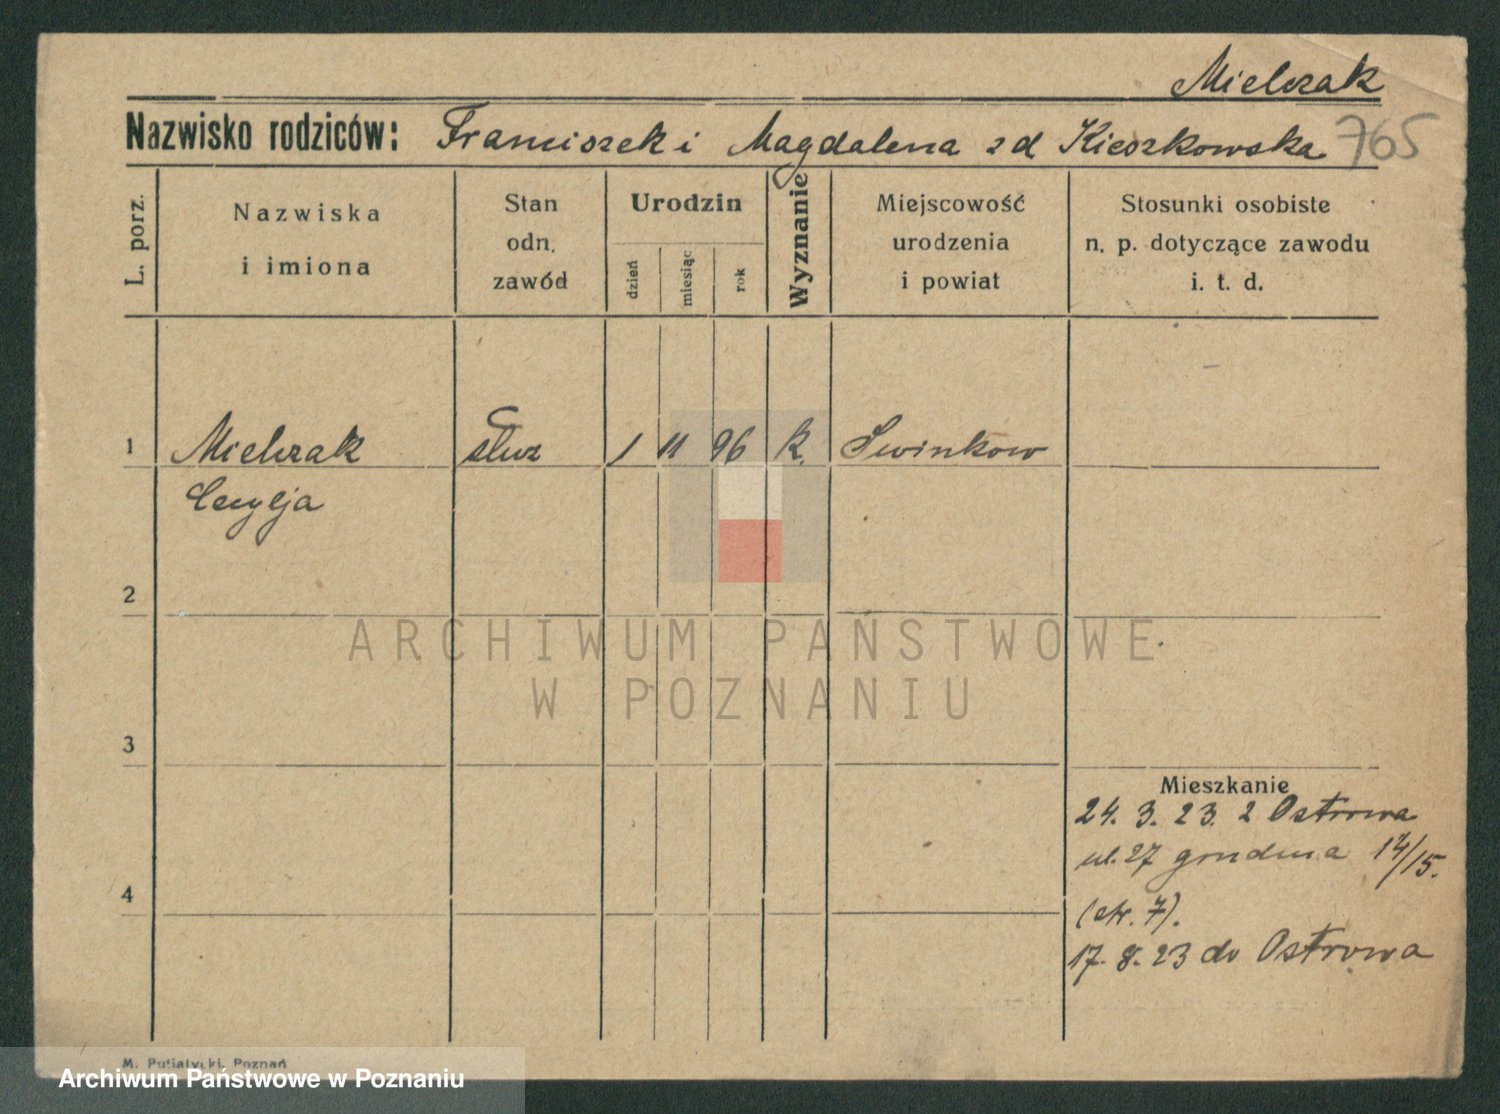 Mielcrak
Nazwisko rodziców: Franciszek i Magdalena zd Kieszkowska 765
L. porz.
Nazwiska
i imiona
Stan
odn.
zawód
Urodzin
dzień
miesiąc
rok
Wyznanie
Miejscowość
urodzenia
i powiat
Stosunki osobiste
n. p. dotyczące zawodu
i. t. d.
1 Mielcrak służ 1 11 96 k. Swinkow
Cecylja
2
ARCHIWUM PAŃSTWOWE
W POZNANIU
3
Mieszkanie
24. 3. 23. z Ostrowa
ul. 27 grudnia 14/15.
4
(str. 7).
17. 8. 23 do Ostrowa
M. Putiatycki, Poznań
Archiwum Państwowe w Poznaniu